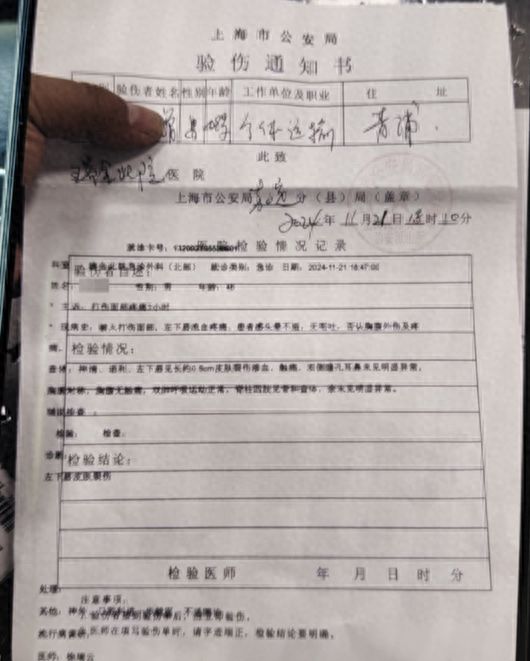 上海市公安局
验伤通知书
验伤者姓名 性别 年龄 工作单位及职业 住 址
男 个体运输 青浦
此致
瑞金北院 医院
上海市公安局 分(县)局(盖章)
2024年11月21日 时10分
就诊卡号:
医院检验情况记录
科室: 外科(北部) 就诊类别:急诊 日期:2024-11-21 18:47:00
验伤者自述:
姓名: 性别:男 年龄:48
* 主诉:打伤面部疼痛2小时
* 现病史:被人打伤面部,左下唇流血疼痛,患者感头晕不适,无呕吐,否认胸腹外伤及疼
痛。
检验情况:
查体:神清,语利,左下唇见长约0.8cm皮肤裂伤渗血,触痛,双侧瞳孔耳鼻未见明显异常,
胸廓对称,胸腹无触痛,双肺呼吸运动正常,脊柱四肢见骨科查体,余未见明显异常。
辅助检查:
检验: 检查:
诊断:
检验结论:
左下唇皮肤裂伤
检验医师 年 月 日 时 分
处理:
注意事项:
其他:
流行病史:
2.医师在填写验伤单时,请字迹端正,检验结论要明确。
医师: